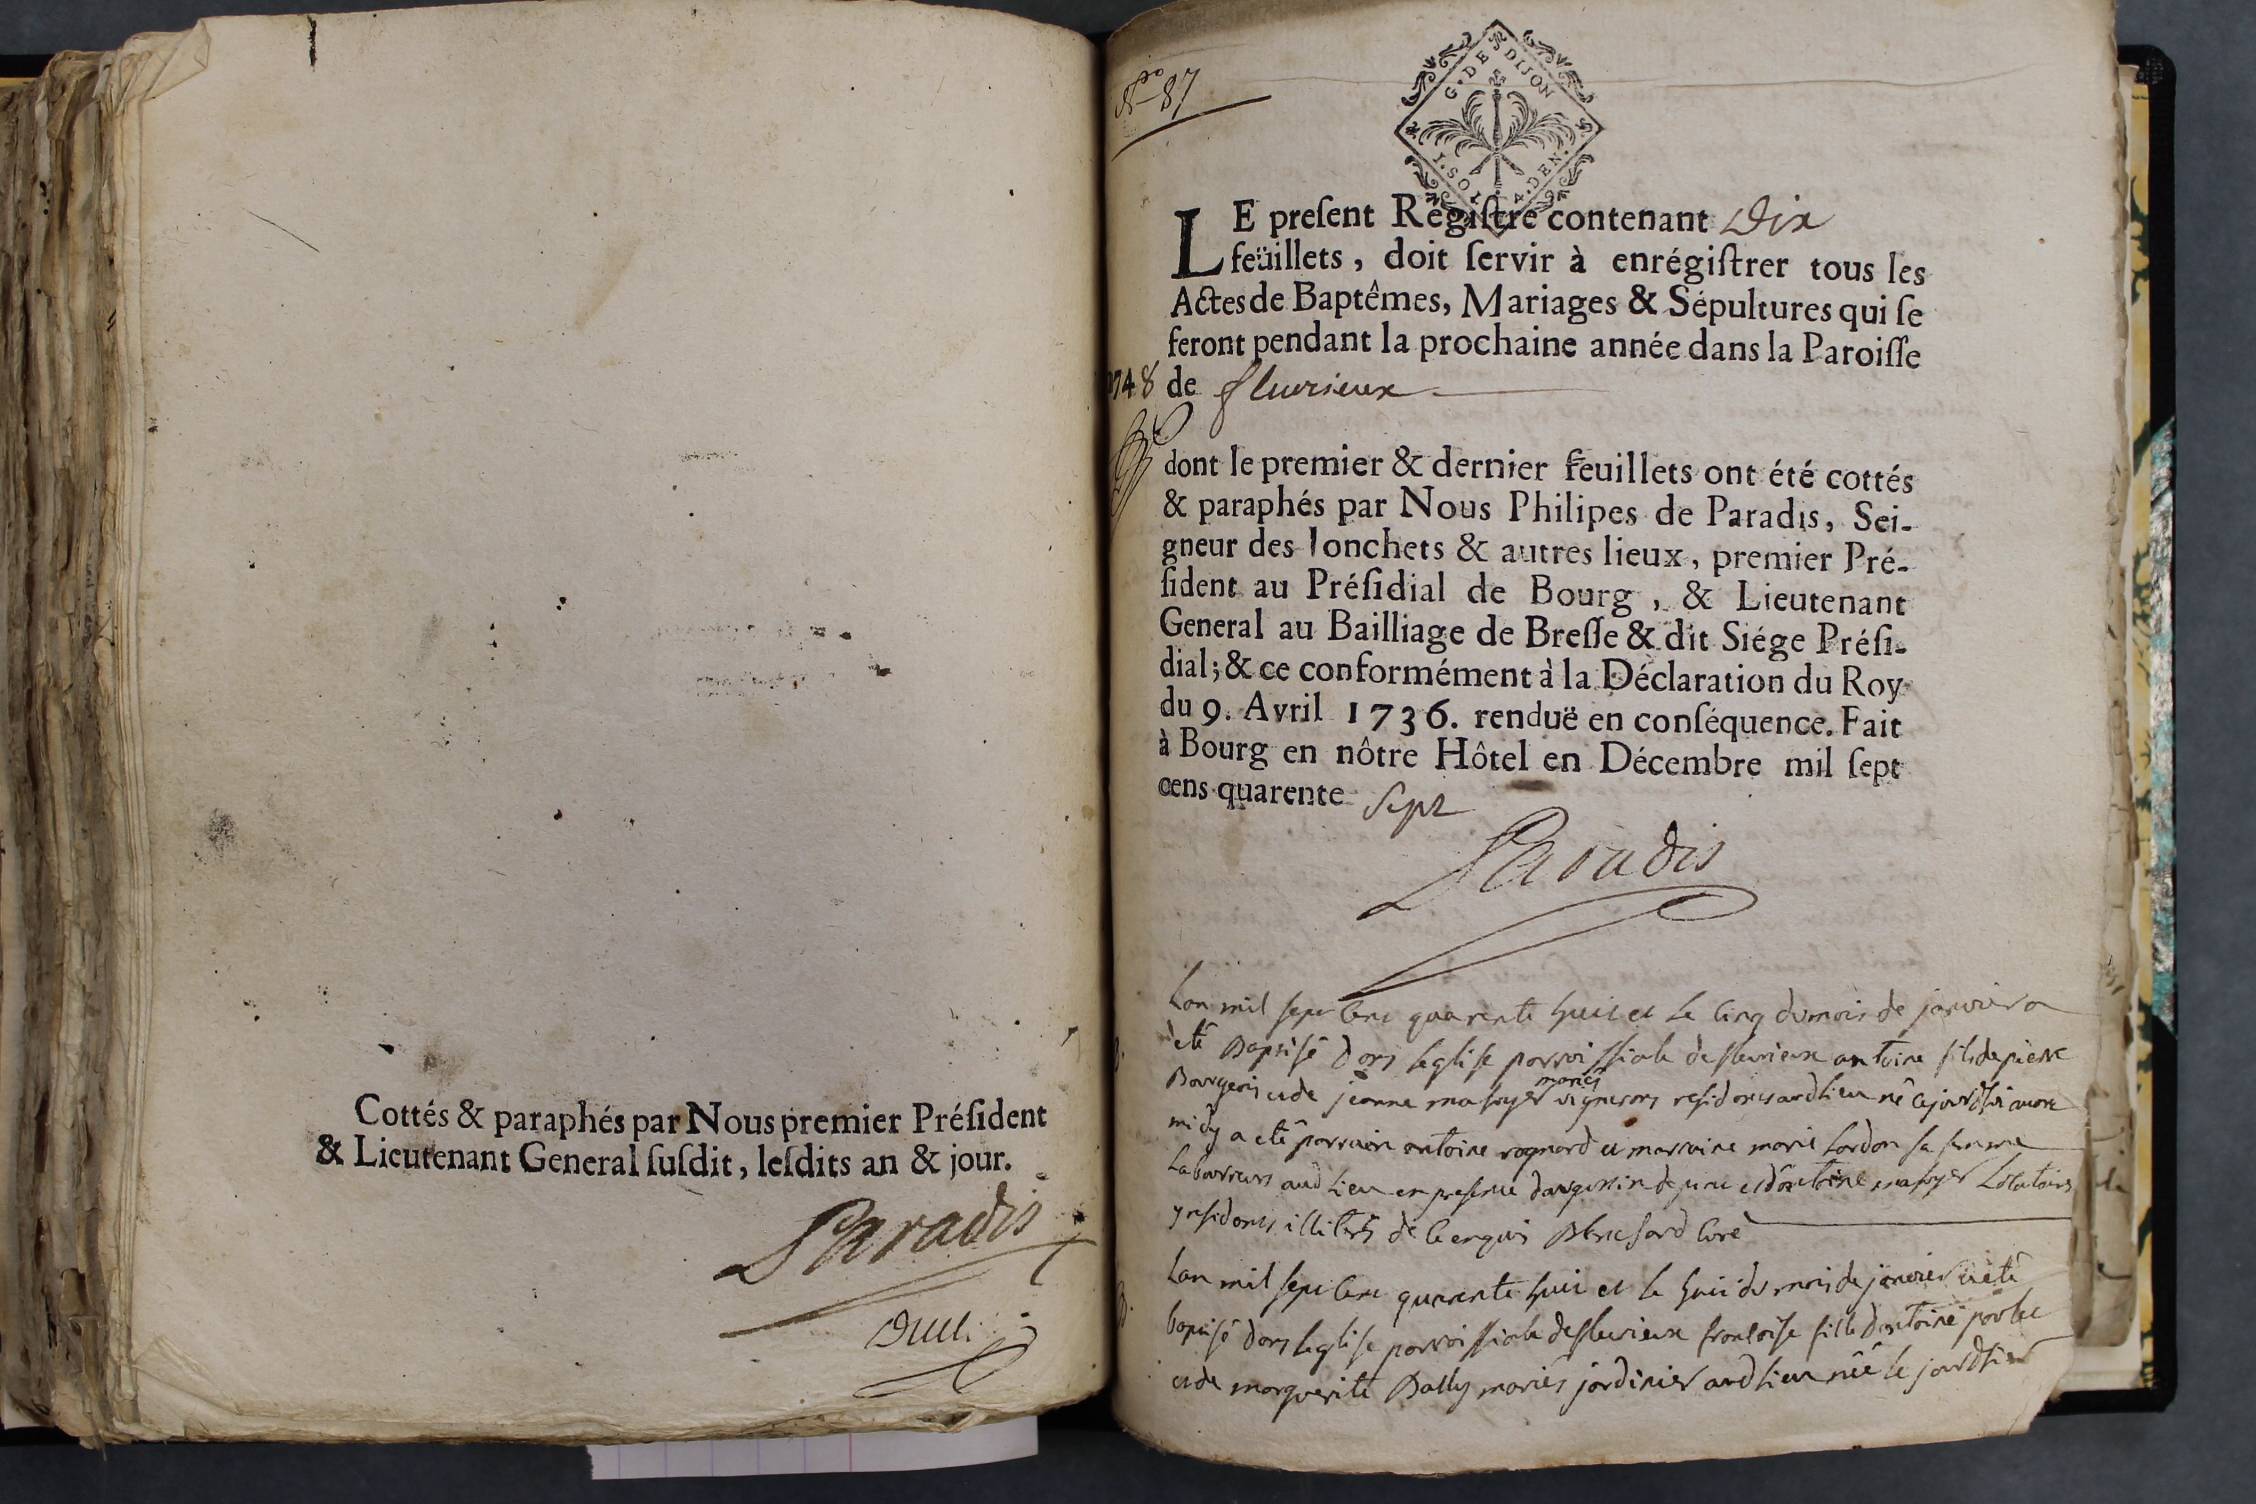 Cottés & paraphés par Nous premier Préſident
& Lieutenant General ſuſdit, leſdits an & jour.
Paradis
N° 87
G. DE DIJON
I. SOL 4. DEN.
LE preſent Regiſtre contenant Dix
feüillets, doit ſervir à enrégiſtrer tous les
Actes de Baptêmes, Mariages & Sépultures qui ſe
feront pendant la prochaine année dans la Paroiſſe
1748 de fluirieux
dont le premier & dernier feuillets ont été cottés
& paraphés par Nous Philipes de Paradis, Sei-
gneur des Ionchets & autres lieux, premier Pré-
ſident au Préſidial de Bourg, & Lieutenant
General au Bailliage de Breſſe & dit Siége Préſi-
dial; & ce conformément à la Déclaration du Roy
du 9. Avril 1736. renduë en conſéquence. Fait
à Bourg en nôtre Hôtel en Décembre mil ſept
cens quarente Sept
Paradis
Lan mil sept cent quarente huit et le cinq du mois de janvier a
B. été Baptisé dans leglise parroissiale de fleurieux antoine fils de pierre
Bourgeois et de jeanne mariés vignerons residents aud lieu né ce jourdhui avant
midy a été parrain antoine et marraine marie lardon sa femme
Laboureurs aud lieu en presence et dantoine
y residents illiterés de ce enquis curé
B. Lan mil sept cent quarente huit et le huit du mois de janvier a été
baptisé dans leglise parroissiale de fleurieux françoise fille dantoine
et de marguerite Bally mariés jardinier aud lieu née le jour dhier